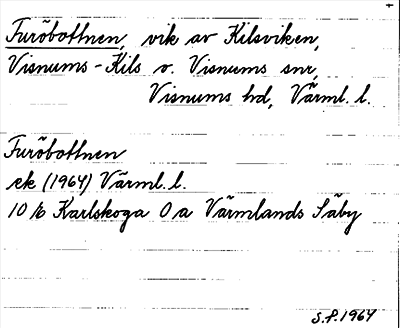 Furöbottnen, vik av Kilsviken,
Visnums-Kils o. Visnums snr,
Visnums hd, Värml. l.
Furöbottnen
ek (1964) Värml. l.
10 16 Karlskoga O a Värmlands Säby
S.P. 1964